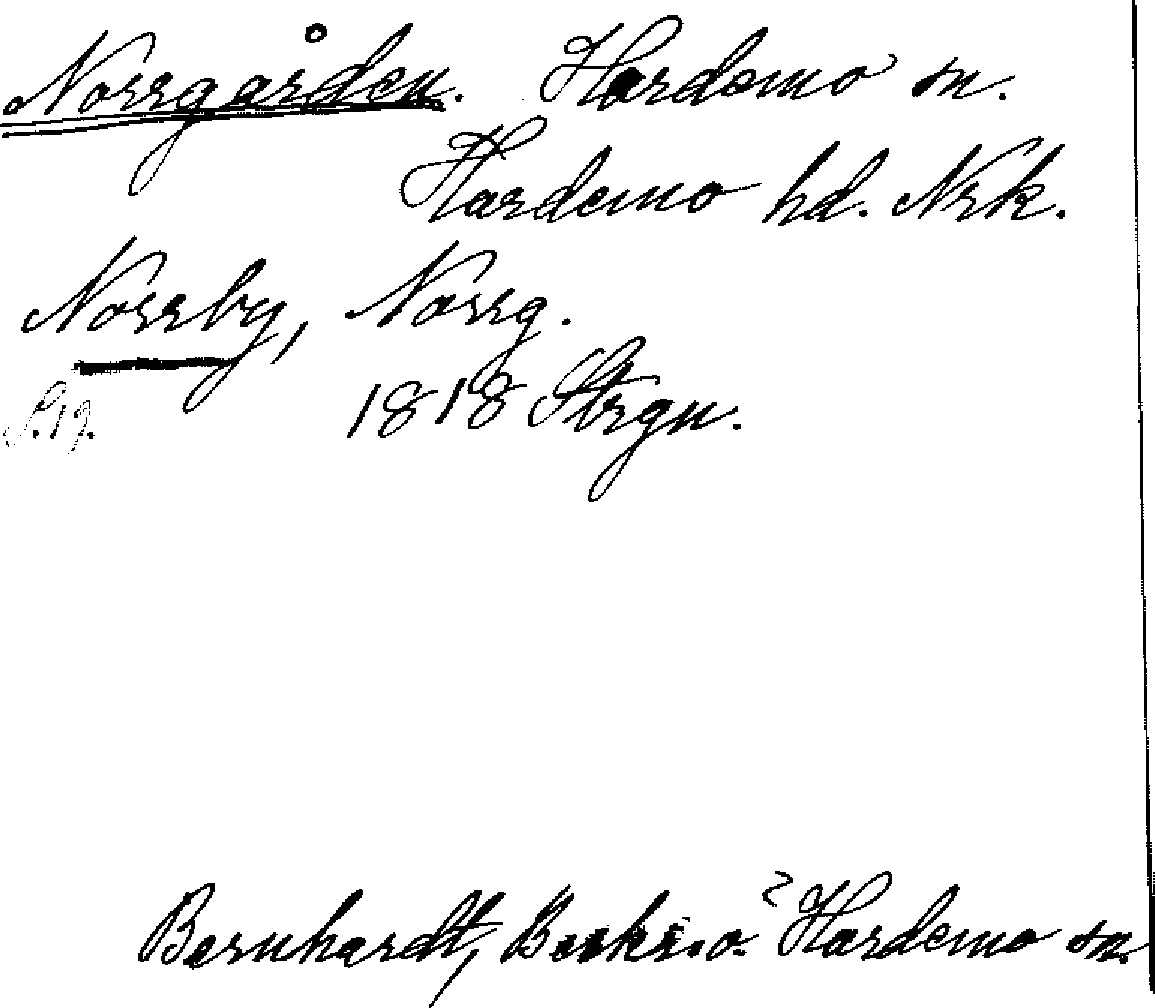 Norrgården. Hardemo sn.
Hardemo hd. Nrk.
Norrby, Norrg.
S. 19. 1818 Strgn.
Bernhardt, Beskr. o. Hardemo sn.